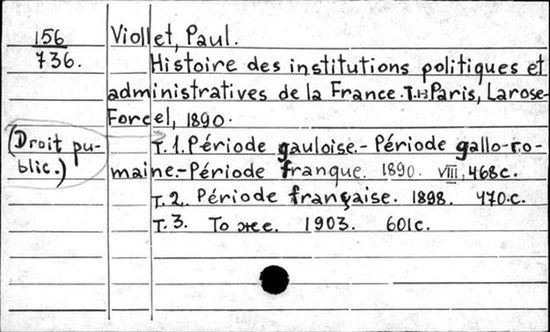 156
736.
Viollet, Paul.
Histoire des institutions politiques et
administratives de la France. T.I-II Paris, Larose-
Forcel, 1890.
(Droit pu-
blic.)
T. 1. Période gauloise.- Période gallo-ro-
maine.-Période franque. 1890. VIII, 468c.
T. 2. Période française. 1898. 470.c.
T. 3. То же. 1903. 601c.